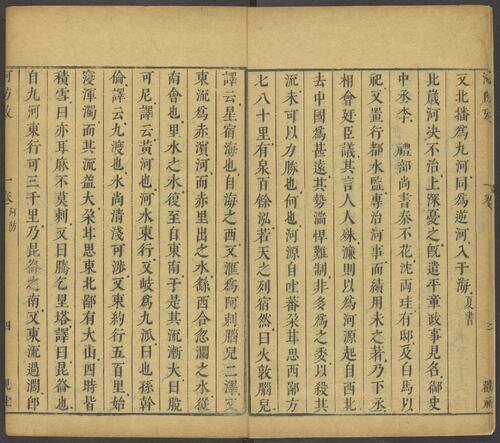 又北播爲九河同爲逆河入于海夏書
比歲河決不治上深憂之旣遣平章政事嵬名御史
中丞李 禮部尚書泰不花沈兩珪有邸及白馬以
祀又置行都水監專治河事而績用未之著乃下丞
相會廷臣議其言人人殊濂則以爲河源起自西北
去中國爲甚遠其勢湍悍難制非多爲之委以殺其
流未可以力勝也何也河源自吐蕃朶甘思西鄙方
七八十里有泉百餘泓若天之列宿然曰火敦腦兒
譯云星宿海也自海之西又滙爲阿剌腦兒二澤又
東流爲赤濱河而赤里出之水餘西合忽闌之水從
南會也里水之水復至自東南于是其流漸大曰脫
可尼譯云黃河也河水東行又岐爲九派曰也孫斡
倫譯云九渡也水尚淸淺可渉又東約行五百里始
寖渾濁而其流益大朶甘思東北鄙有大山四時皆
積雪曰亦耳麻不莫剌又曰騰乞里塔譯曰昆侖也
自九河東行可三千里乃昆侖之南又東流過濶郎
河防攷 一卷 河防 四